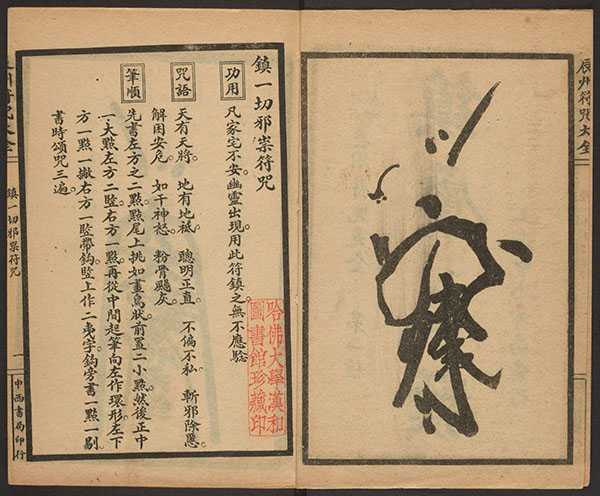 辰州符咒大全
鎮一切邪祟符咒
功用
凡家宅不安。幽靈出現。用此符鎮之。無不應騐
咒語
天有天將。地有地祇。聰明正直。不偏不私。斬邪除惡。
解困安危。如干神怒。粉骨颺灰。
筆順
先書左方之二點。點尾上挑如畫鳥狀。前置二小點。然後正中
一大點。左方二竪。右方一點。再從中間起筆向左作環形。左下
方一點一撇。右方一竪帶鈎。竪上作二夷字。鈎旁書一點一剔。
書時頌咒三遍。
哈佛大學漢和
圖書館珍藏印
鎮一切邪祟符咒
一
中西書局印行